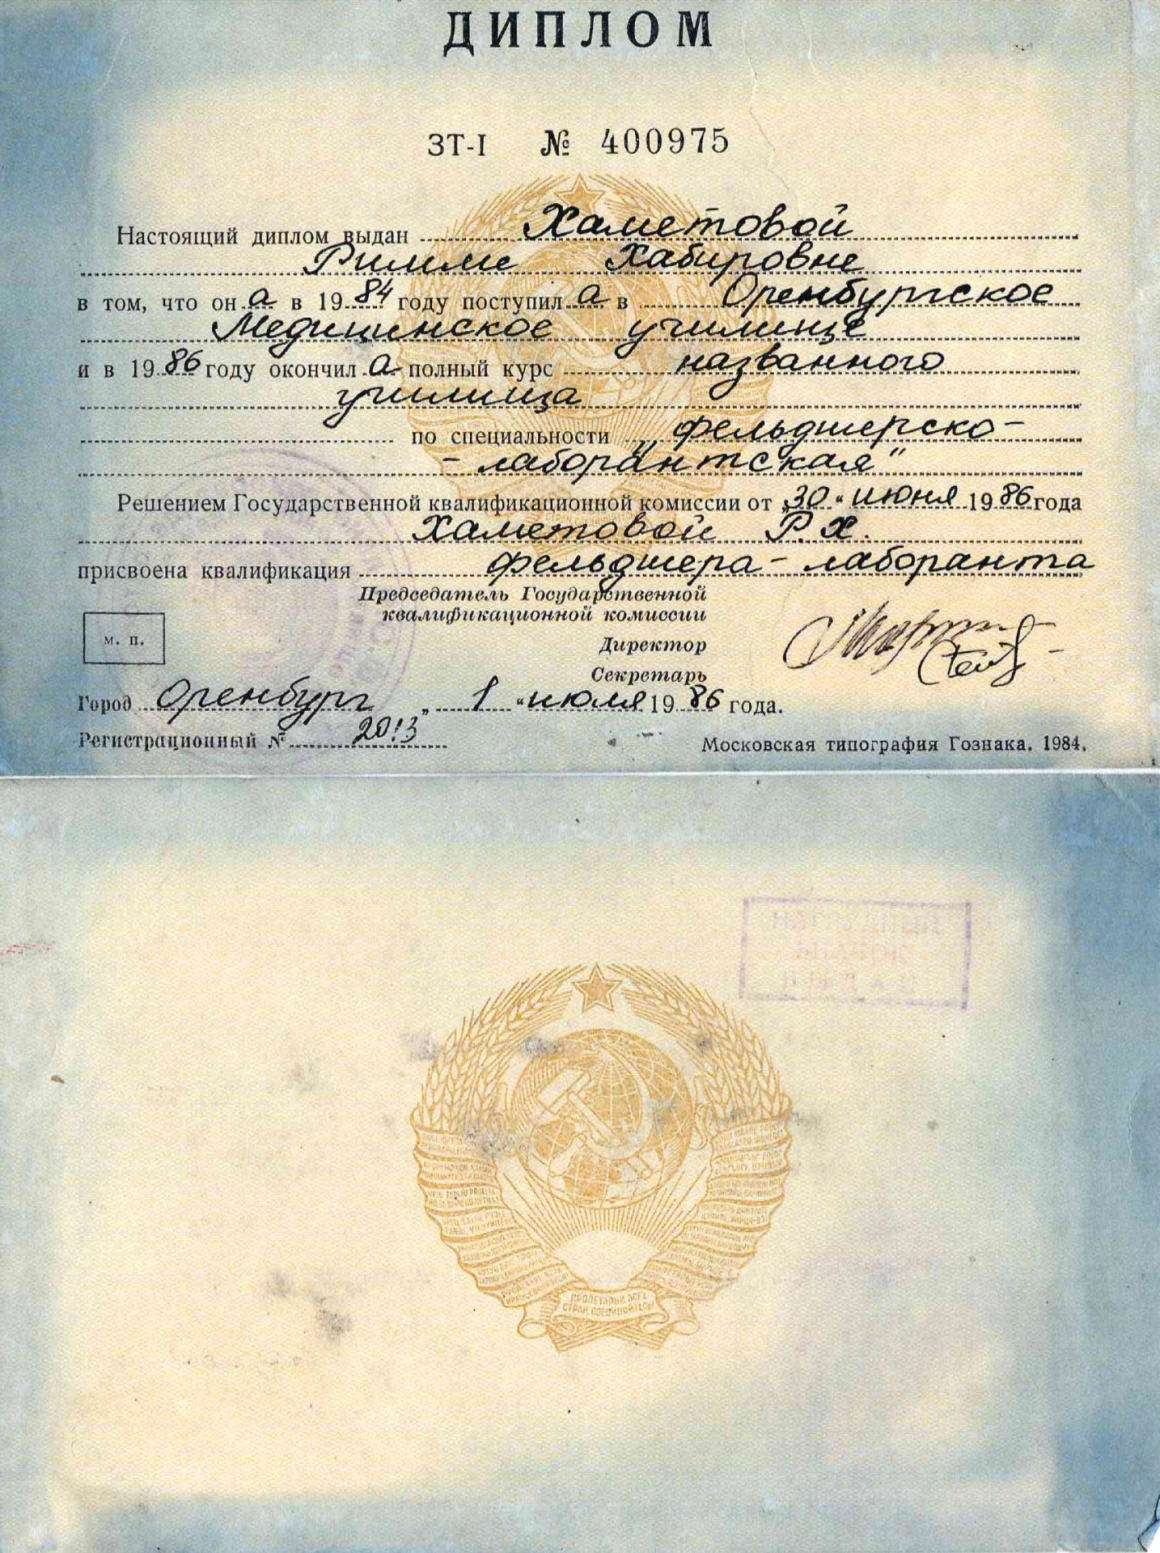 ДИПЛОМ
ЗТ-I № 400975
Настоящий диплом выдан Хаметовой
Римме Хабировне
в том, что он а в 1984 году поступил а в Оренбургское
Медицинское училище
и в 1986 году окончил а полный курс названного
училища
по специальности „фельдшерско-
-лаборантская"
Решением Государственной квалификационной комиссии от „30" июня 1986 года
Хаметовой Р.Х.
присвоена квалификация фельдшера-лаборанта
Председатель Государственной
квалификационной комиссии
Директор
м. п.
Секретарь
Город Оренбург „1" июля 1986 года.
Регистрационный № 2013
Московская типография Гознака. 1984.
ПРОЛЕТАРИИ ВСЕХ
СТРАН, СОЕДИНЯЙТЕСЬ!